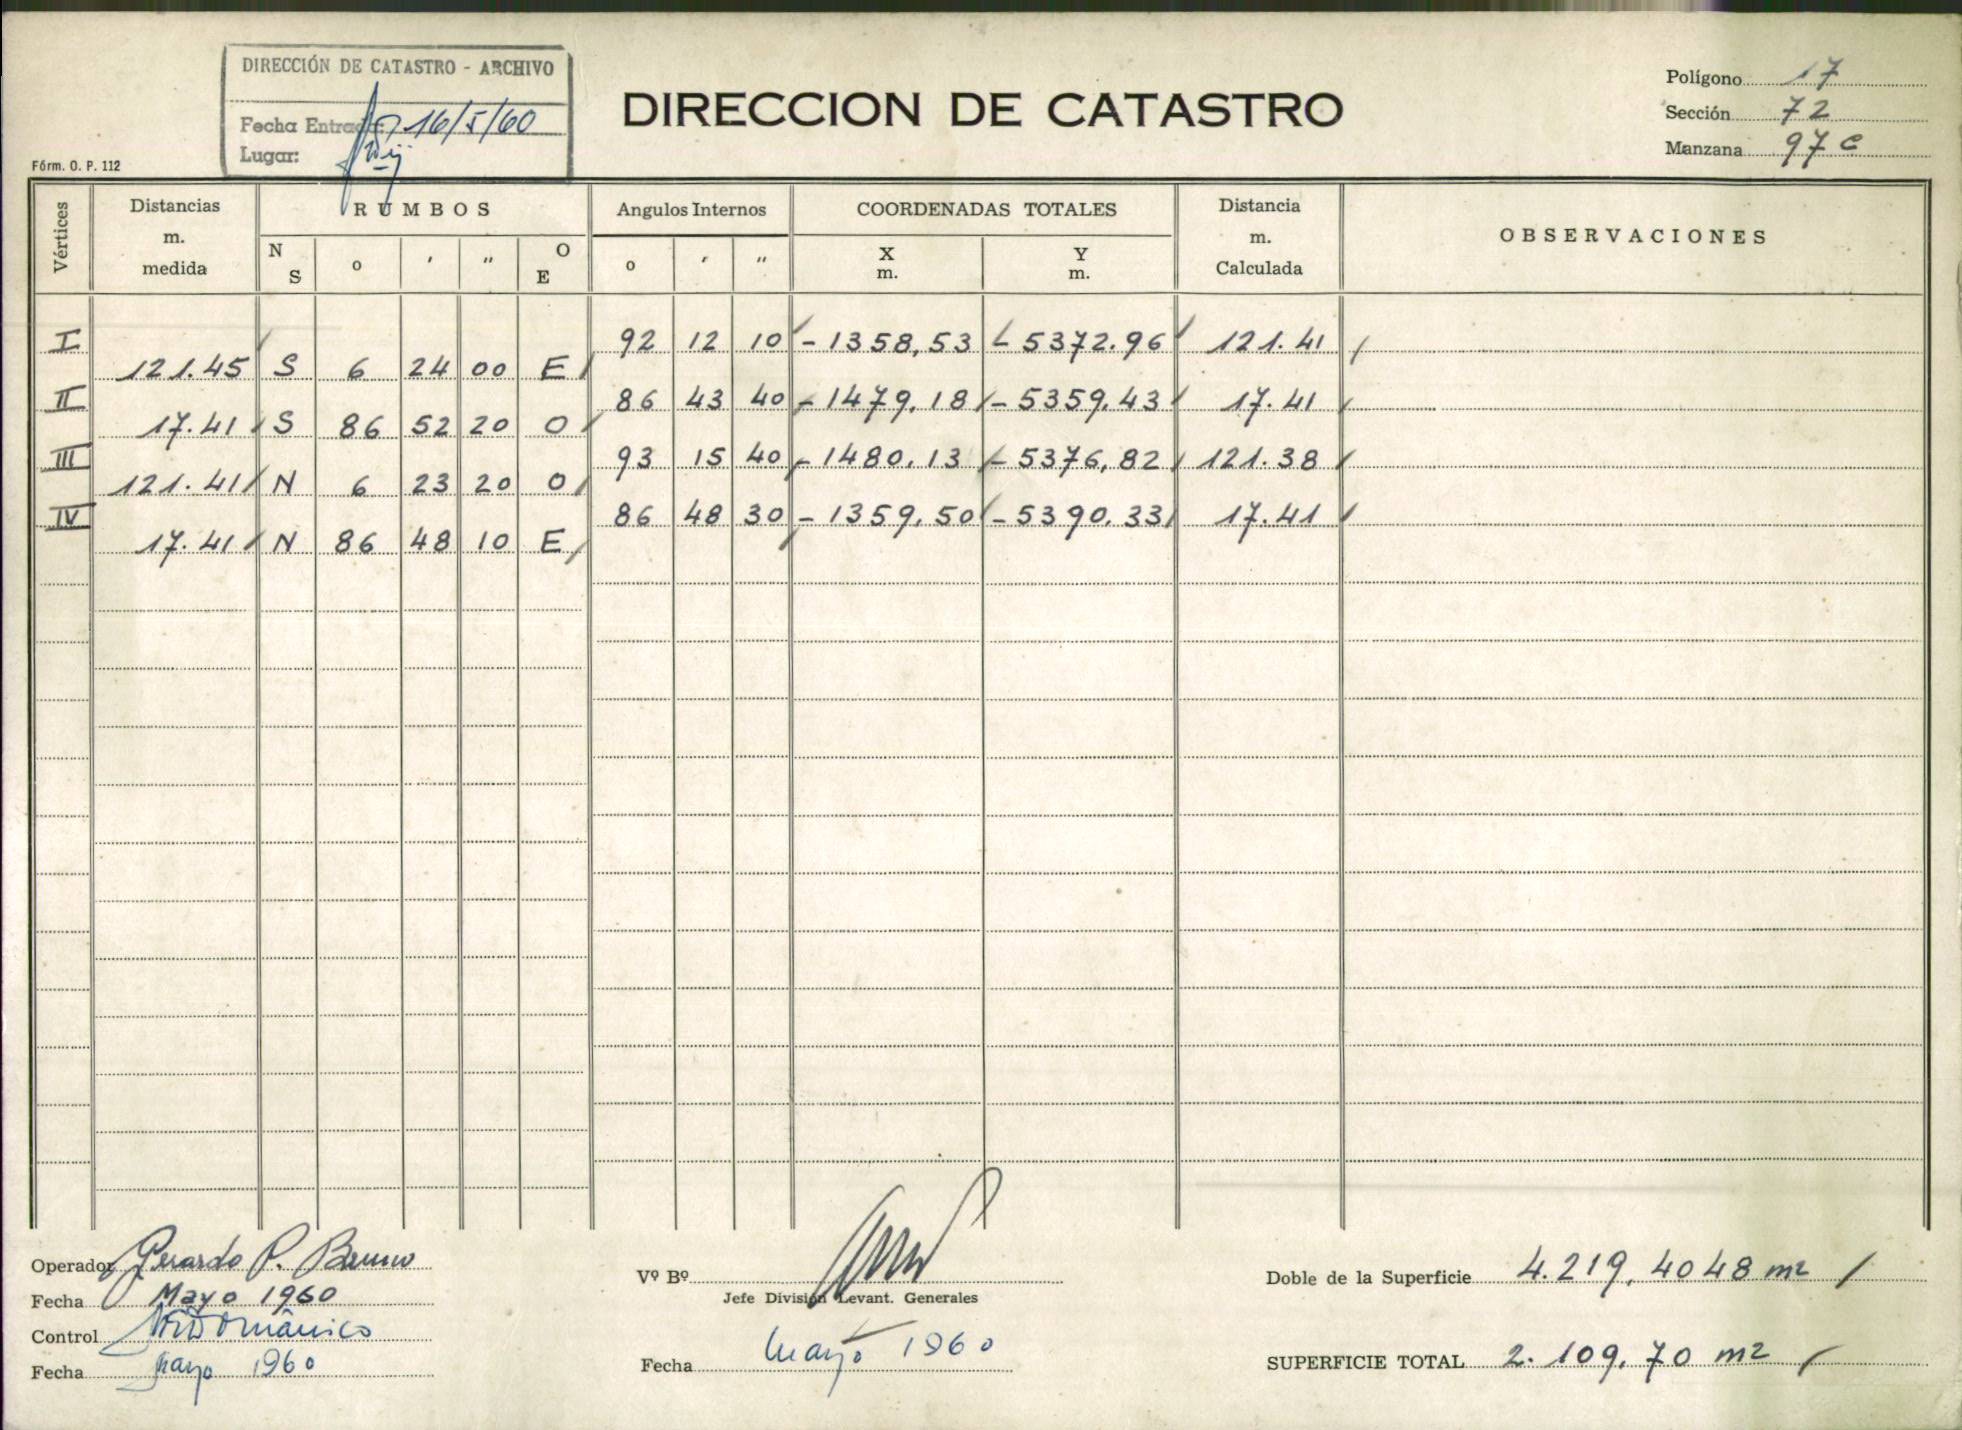 DIRECCIÓN DE CATASTRO - ARCHIVO
Fecha Entrada 16/5/60
Lugar:
DIRECCION DE CATASTRO
Polígono 17
Sección 72
Manzana 97 c
Fórm. O. P. 112
Vértices Distancias m. medida RUMBOS Angulos Internos COORDENADAS TOTALES Distancia m. Calculada OBSERVACIONES
N S o ' " O E o ' " X m. Y m.
I 92 12 10 - 1358,53 - 5372.96 121.41
121.45 S 6 24 00 E
II 86 43 40 - 1479,18 - 5359,43 17.41
17.41 S 86 52 20 O
III 93 15 40 - 1480,13 - 5376,82 121.38
121.41 N 6 23 20 O
IV 86 48 30 - 1359,50 - 5390,33 17.41
17.41 N 86 48 10 E
Operador Gerardo P. Bruno
Fecha Mayo 1960
Control
Fecha mayo 1960
Vº Bº
Jefe División Levant. Generales
Fecha Mayo 1960
Doble de la Superficie 4.219,4048 m2
SUPERFICIE TOTAL 2.109,70 m2